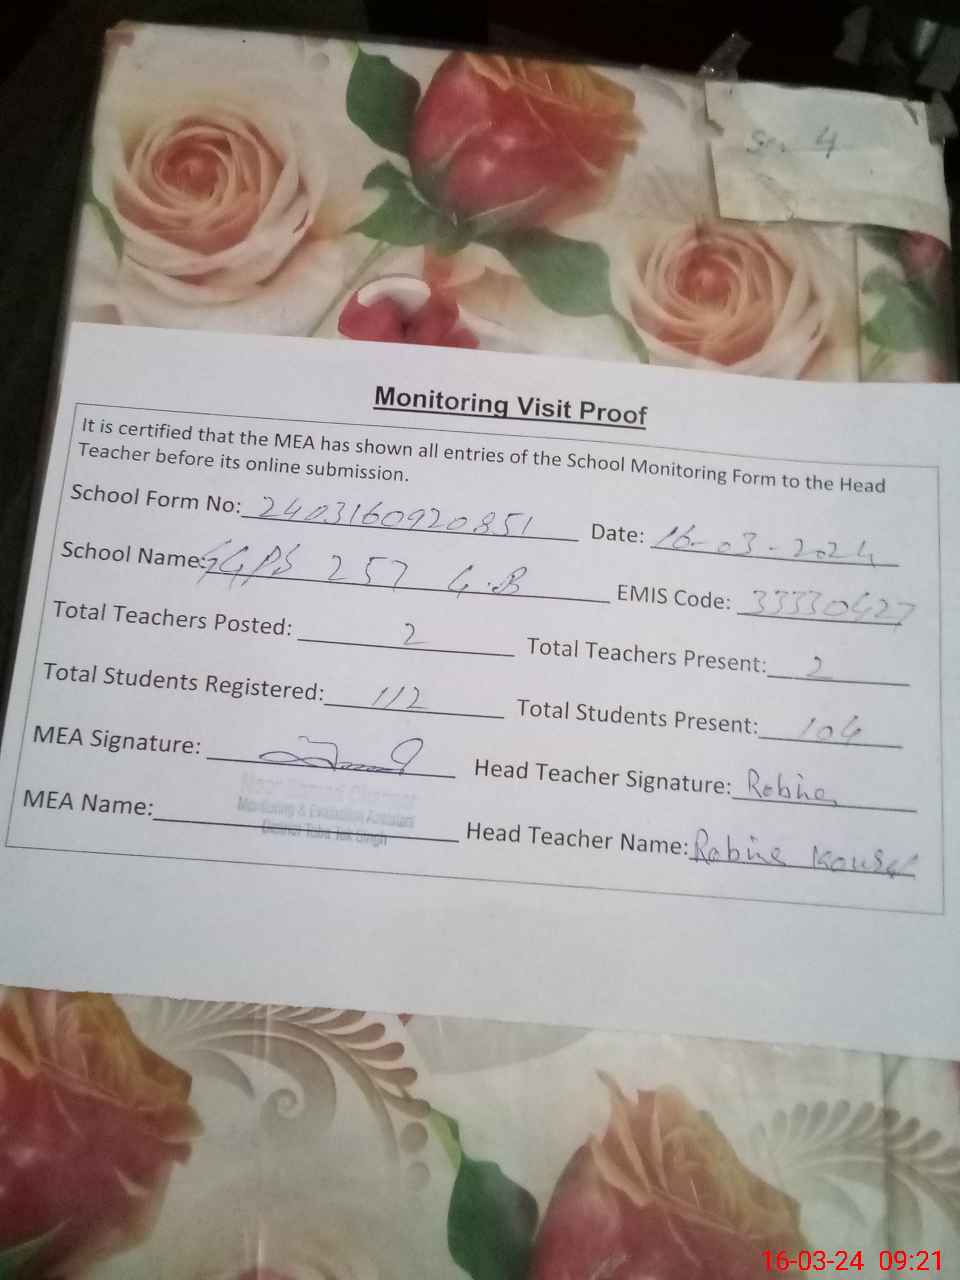 Sr. 4
Monitoring Visit Proof
It is certified that the MEA has shown all entries of the School Monitoring Form to the Head
Teacher before its online submission.
School Form No: 2403160920851 Date: 16-03-2024
School Name: GGPS 257 G.B EMIS Code: 33330427
Total Teachers Posted: 2 Total Teachers Present: 2
Total Students Registered: 112 Total Students Present: 104
MEA Signature: Head Teacher Signature: Robina
Monitoring & Evaluation Assistant
District Toba Tek Singh
MEA Name: Head Teacher Name: Robina Kousar
16-03-24 09:21